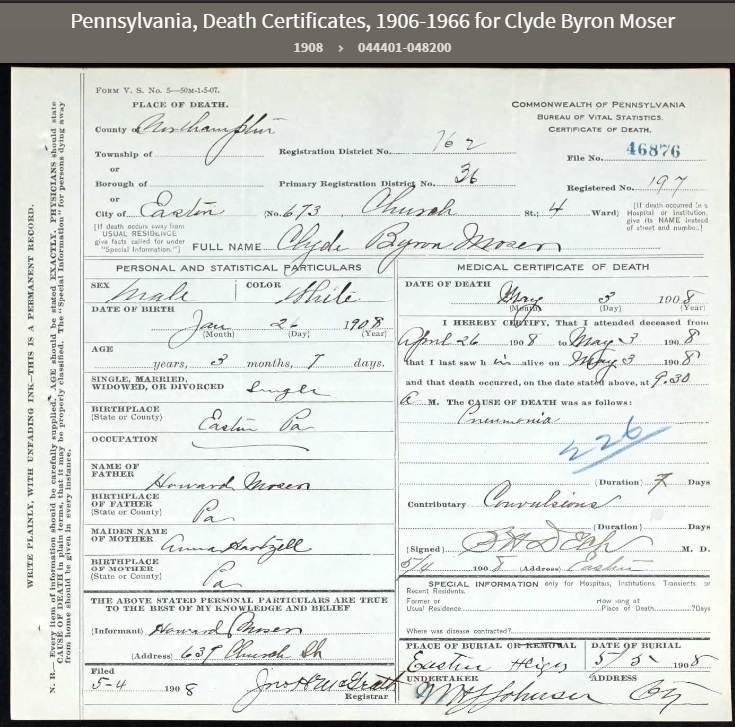 Pennsylvania, Death Certificates, 1906-1966 for Clyde Byron Moser
1908 › 044401-048200
FORM V. S. No. 5—50M-1-5-07.
PLACE OF DEATH.
County of Northampton
Township of
or
Borough of
or
City of Easton
[If death occurs away from USUAL RESIDENCE give facts called for under "Special Information."]
COMMONWEALTH OF PENNSYLVANIA
BUREAU OF VITAL STATISTICS.
CERTIFICATE OF DEATH.
Registration District No. 762
File No. 46876
Primary Registration District No. 36
Registered No. 197
(No. 673 Church St.; 4 Ward)
[If death occurred in a Hospital or Institution, give its NAME instead of street and number.]
FULL NAME Clyde Byron Moser
PERSONAL AND STATISTICAL PARTICULARS
SEX Male
COLOR White
DATE OF BIRTH
Jan 26 1908
(Month) (Day) (Year)
AGE
years, 3 months, 7 days.
SINGLE, MARRIED,
WIDOWED, OR DIVORCED Single
BIRTHPLACE
(State or County) Easton Pa
OCCUPATION
NAME OF
FATHER Howard Moser
BIRTHPLACE
OF FATHER
(State or County) Pa
MAIDEN NAME
OF MOTHER Anna Hartzell
BIRTHPLACE
OF MOTHER
(State or County) Pa
THE ABOVE STATED PERSONAL PARTICULARS ARE TRUE
TO THE BEST OF MY KNOWLEDGE AND BELIEF
(Informant) Howard Moser
(Address) Church
Filed
5-4 1908
Registrar
MEDICAL CERTIFICATE OF DEATH
DATE OF DEATH
May 3 1908
(Month) (Day) (Year)
I HEREBY CERTIFY, That I attended deceased from
April 26 1908 to May 3 1908
that I last saw h im alive on May 3 1908
and that death occurred, on the date stated above, at 9.30
A M. The CAUSE OF DEATH was as follows:
Pneumonia
226
(Duration) 7 Days
Contributary Convulsions
(Duration) Days
(Signed) M. D.
5/4 1908 (Address) Easton
SPECIAL INFORMATION only for Hospitals, Institutions, Transients or
Recent Residents.
Former or
Usual Residence
How long at
Place of Death ?Days
Where was disease contracted?
PLACE OF BURIAL OR REMOVAL
Easton Heights
DATE OF BURIAL
5/5 1908
UNDERTAKER
ADDRESS
City
WRITE PLAINLY, WITH UNFADING INK—THIS IS A PERMANENT RECORD.
N. B.—Every item of information should be carefully supplied. AGE should be stated EXACTLY. PHYSICIANS should state
CAUSE OF DEATH in plain terms, that it may be properly classified. The "Special Information" for persons dying away
from home should be given in every instance.